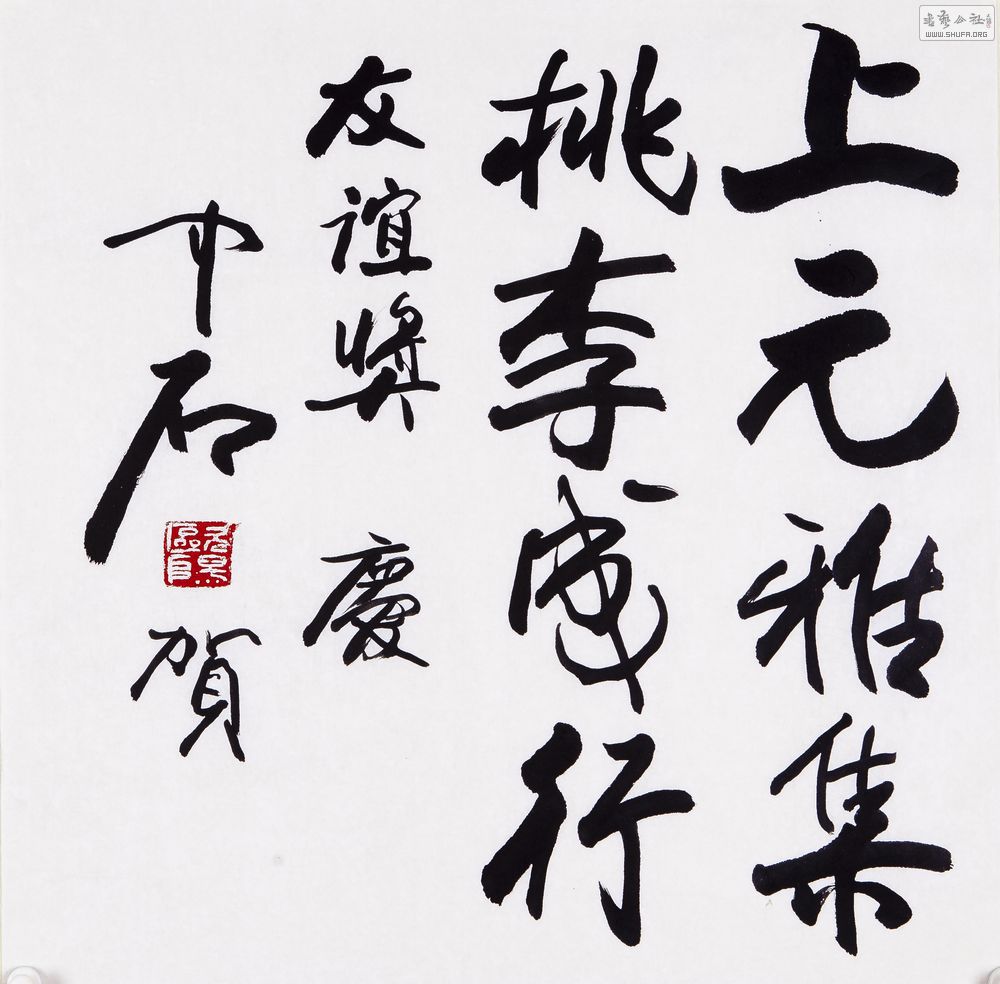 上元雅集
桃李成行
友誼獎 慶
中石 賀
書藝公社
WWW.SHUFA.ORG